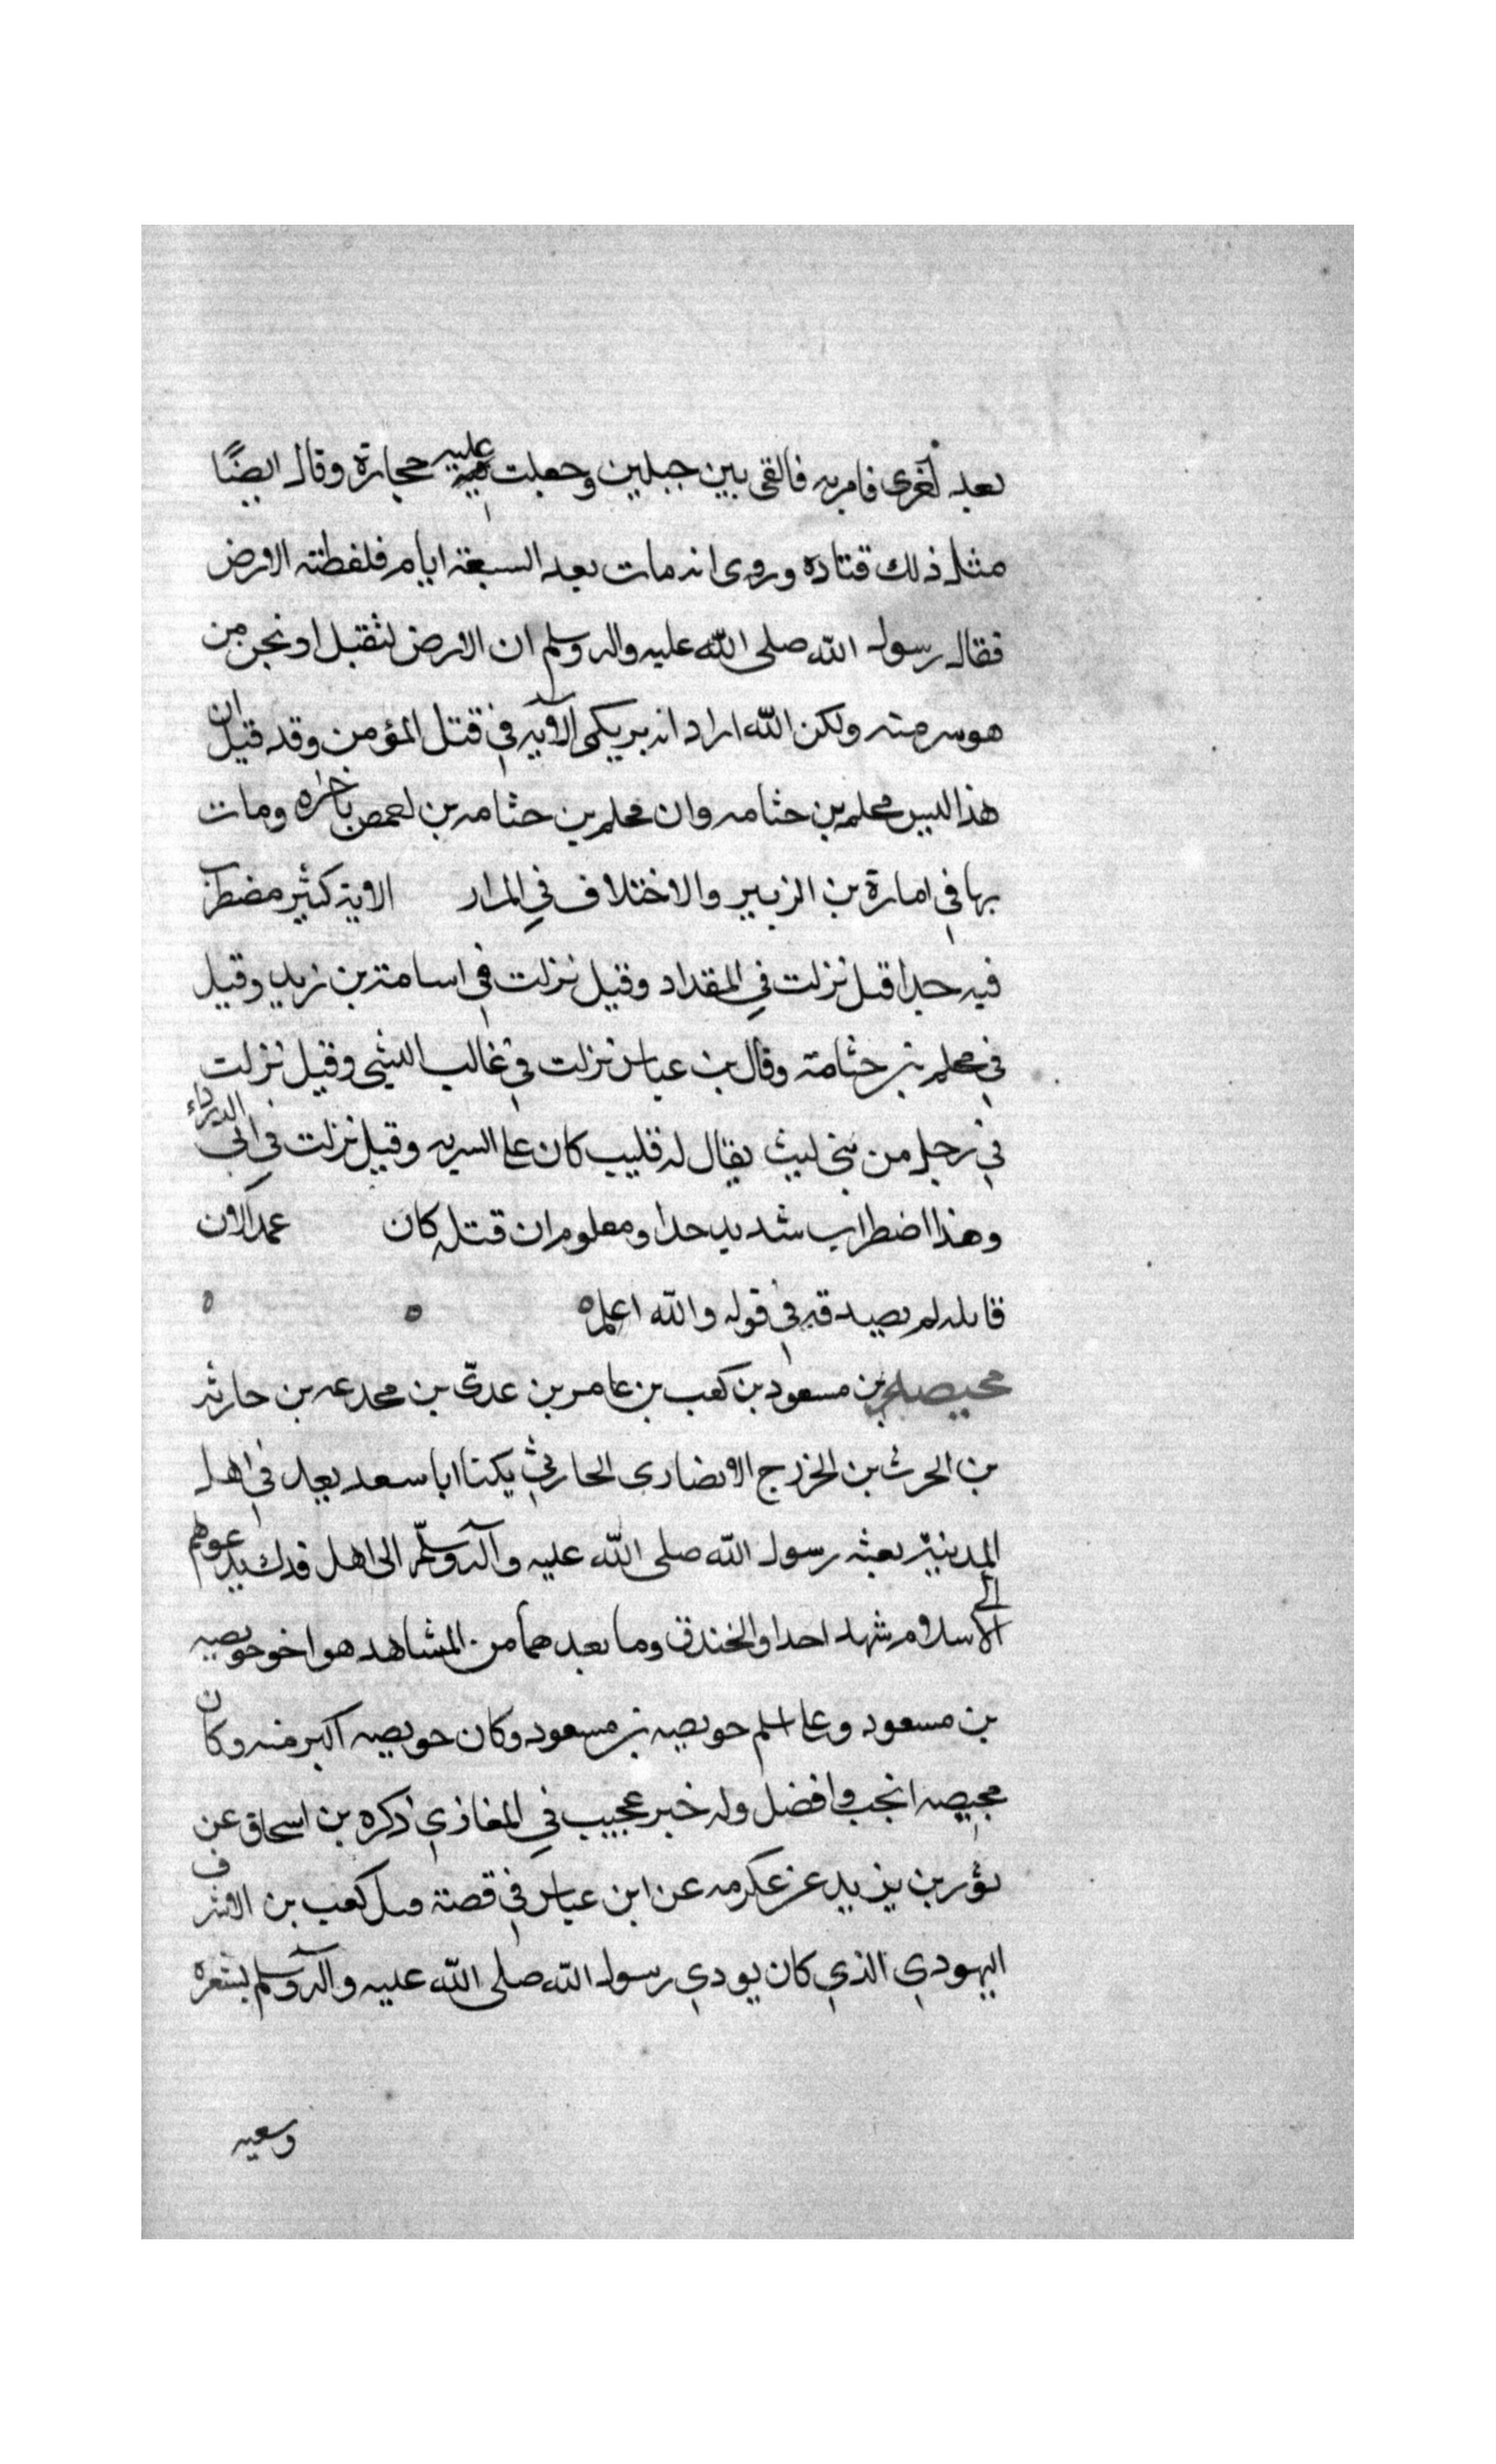 بعد لغرى فامر به فالقى بين جبلين وجعلت عليه حجارة وقال ايضًا
مثل ذلك قتاده وروى انه مات بعد السبعة ايام فلفطته الارض
فقال رسول الله صلى الله عليه واله وسلم ان الارض لتقبل او نجن من
هو سر منه ولكن الله اراد انه يريكم الآيه في قتل المؤمن وقد قيل ان
هذا ليس محلم بن جثامه وان محلم بن جثامه بن لحمص باخره ومات
بها في امارة بن الزبير والاختلاف في المراد الاية كثير مضطرب
فيه جدا قيل نزلت في المقداد وقيل نزلت في اسامة بن زيد وقيل
في محلم بن جثامة وقال بن عباس نزلت في غالب الليثي وقيل نزلت
في رجل من بني ليث يقال له قليب كان على السريه وقيل نزلت في ابي الدرداء
وهذا اضطراب شديد جدا ومعلوم ان قتله كان عمدا لان
قاتله لم يصدقه في قوله والله اعلم
محيصه بن مسعود بن كعب بن عامر بن عدىّ بن مجدعه بن حارثه
بن الحرث بن الخزرج الانصارى الحارثي يكنا ابا سعد يعد في اهل
المدينة بعثه رسول الله صلى الله عليه وآله وسلّم الى اهل فدك يدعوهم
الى الاسلام شهد احدا والخندق وما بعدهما من المشاهد هو اخو حويصه
بن مسعود وعلى اسلم حويصه بن مسعود وكان حويصه اكبر منه وكان
محيصه انجب وافضل وله خبر عجيب في المغازي ذكره بن اسحاق عن
ثور بن يزيد عن عكرمه عن ابن عباس في قصة قتل كعب بن الاشرف
اليهودي الذي كان يودي رسول الله صلى الله عليه وآله وسلم بشعره
وسعيه